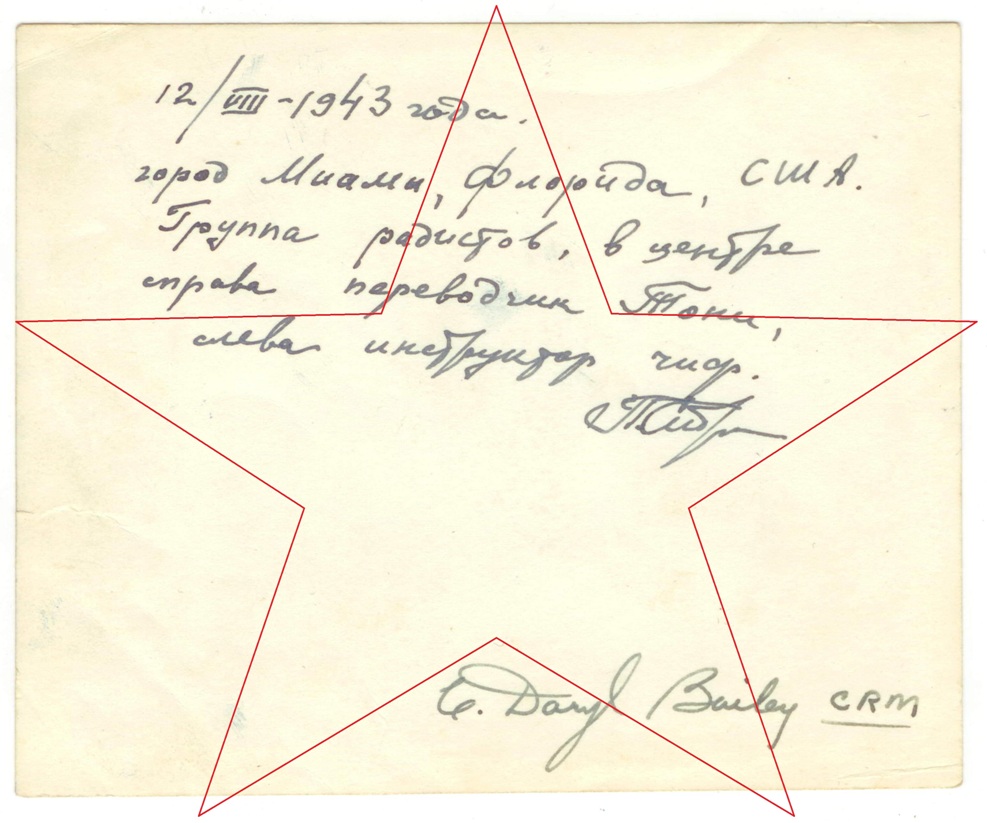 12/VIII - 1943 года.
город Миами, Флорида, США.
Группа радистов, в центре
справа переводчик Тони,
слева инструктор
E. Daryl Bailey CRM